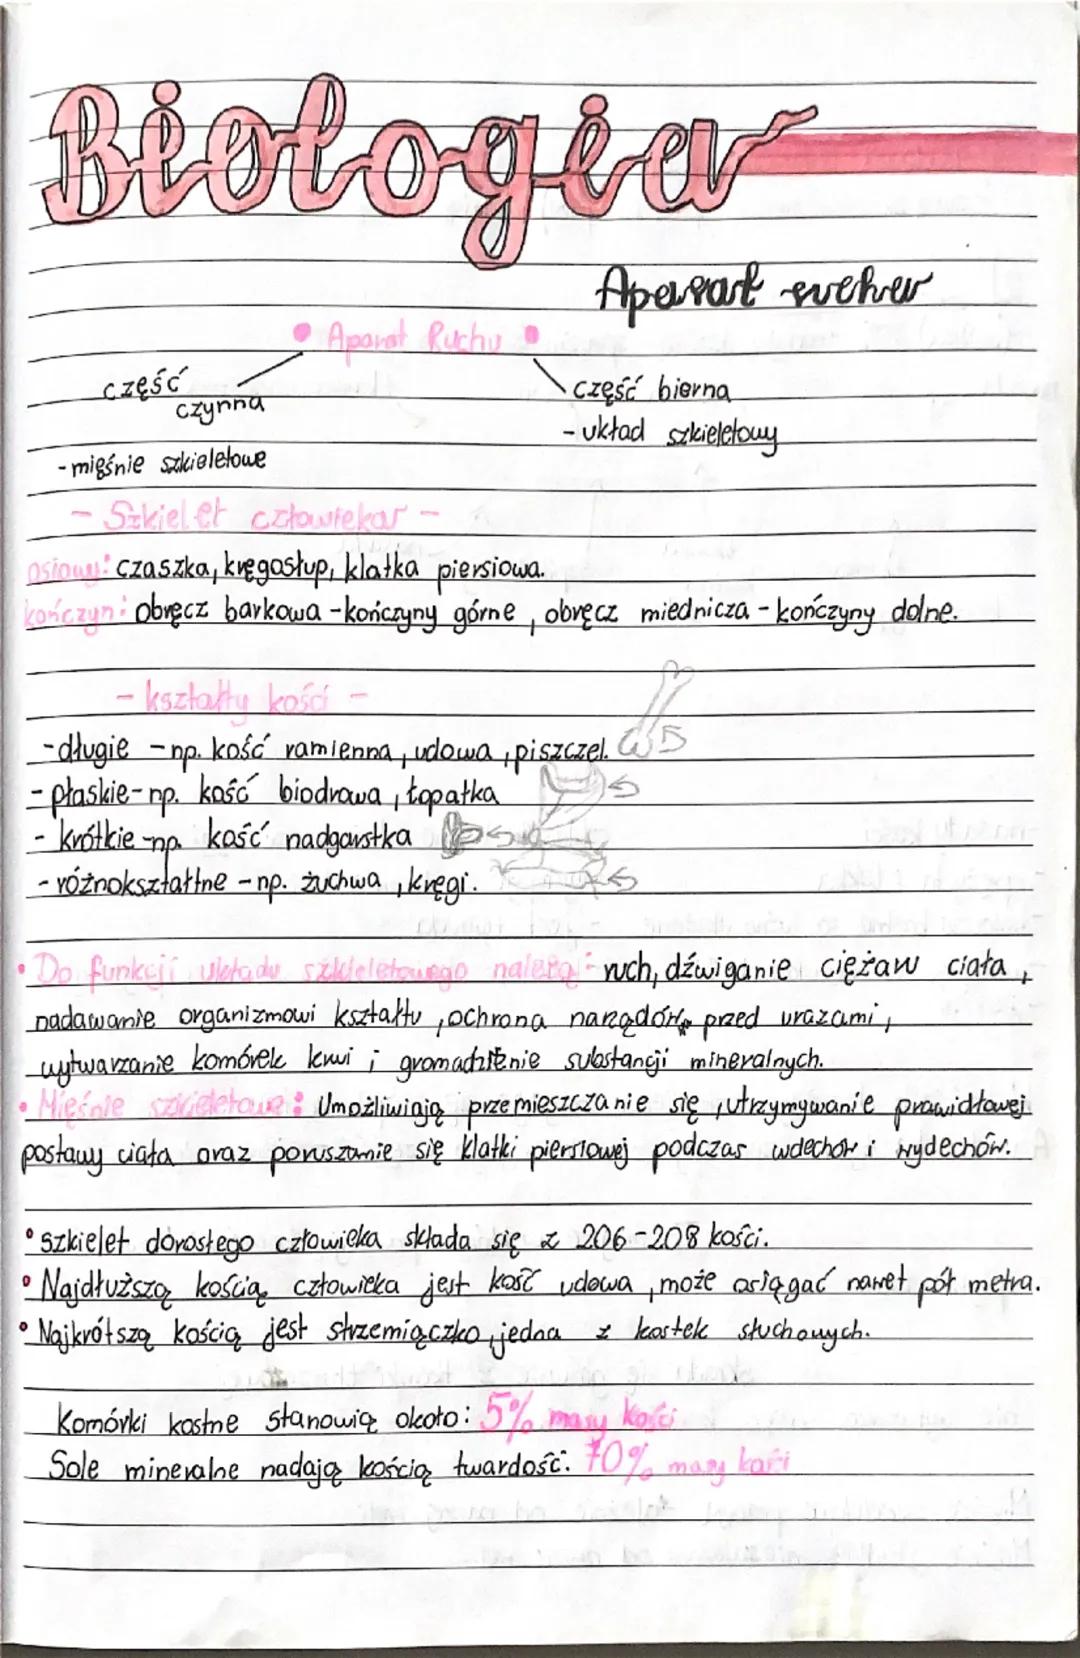 Biologia
Aparat ruchu
• Aparat Ruchu •
część czynna
część bierna
- układ szkieletowy
- mięśnie szkieletowe
- Szkielet człowieka -
osiowy: czaszka, kręgosłup, klatka piersiowa.
kończyn: obręcz barkowa - kończyny górne, obręcz miednicza - kończyny dolne.
- kształty kości -
- długie - np. kość ramienna, udowa, piszczel.
- płaskie - np. kość biodrowa, łopatka
- krótkie - np. kość nadgarstka
- różnokształtne - np. żuchwa, kręgi.
• Do funkcji układu szkieletowego należą: ruch, dźwiganie ciężaru ciała,
nadawanie organizmowi kształtu, ochrona narządów przed urazami,
wytwarzanie komórek krwi i gromadzenie substancji mineralnych.
• Mięśnie szkieletowe: Umożliwiają przemieszczanie się, utrzymywanie prawidłowej
postawy ciała oraz poruszanie się klatki piersiowej podczas wdechów i wydechów.
• szkielet dorosłego człowieka składa się z 206-208 kości.
• Najdłuższą kością człowieka jest kość udowa, może osiągać nawet pół metra.
• Najkrótszą kością jest strzemiączko, jedna z kostek słuchowych.
Komórki kostne stanowią około: 5% masy kości
Sole mineralne nadają kością twardość. 70% masy kości